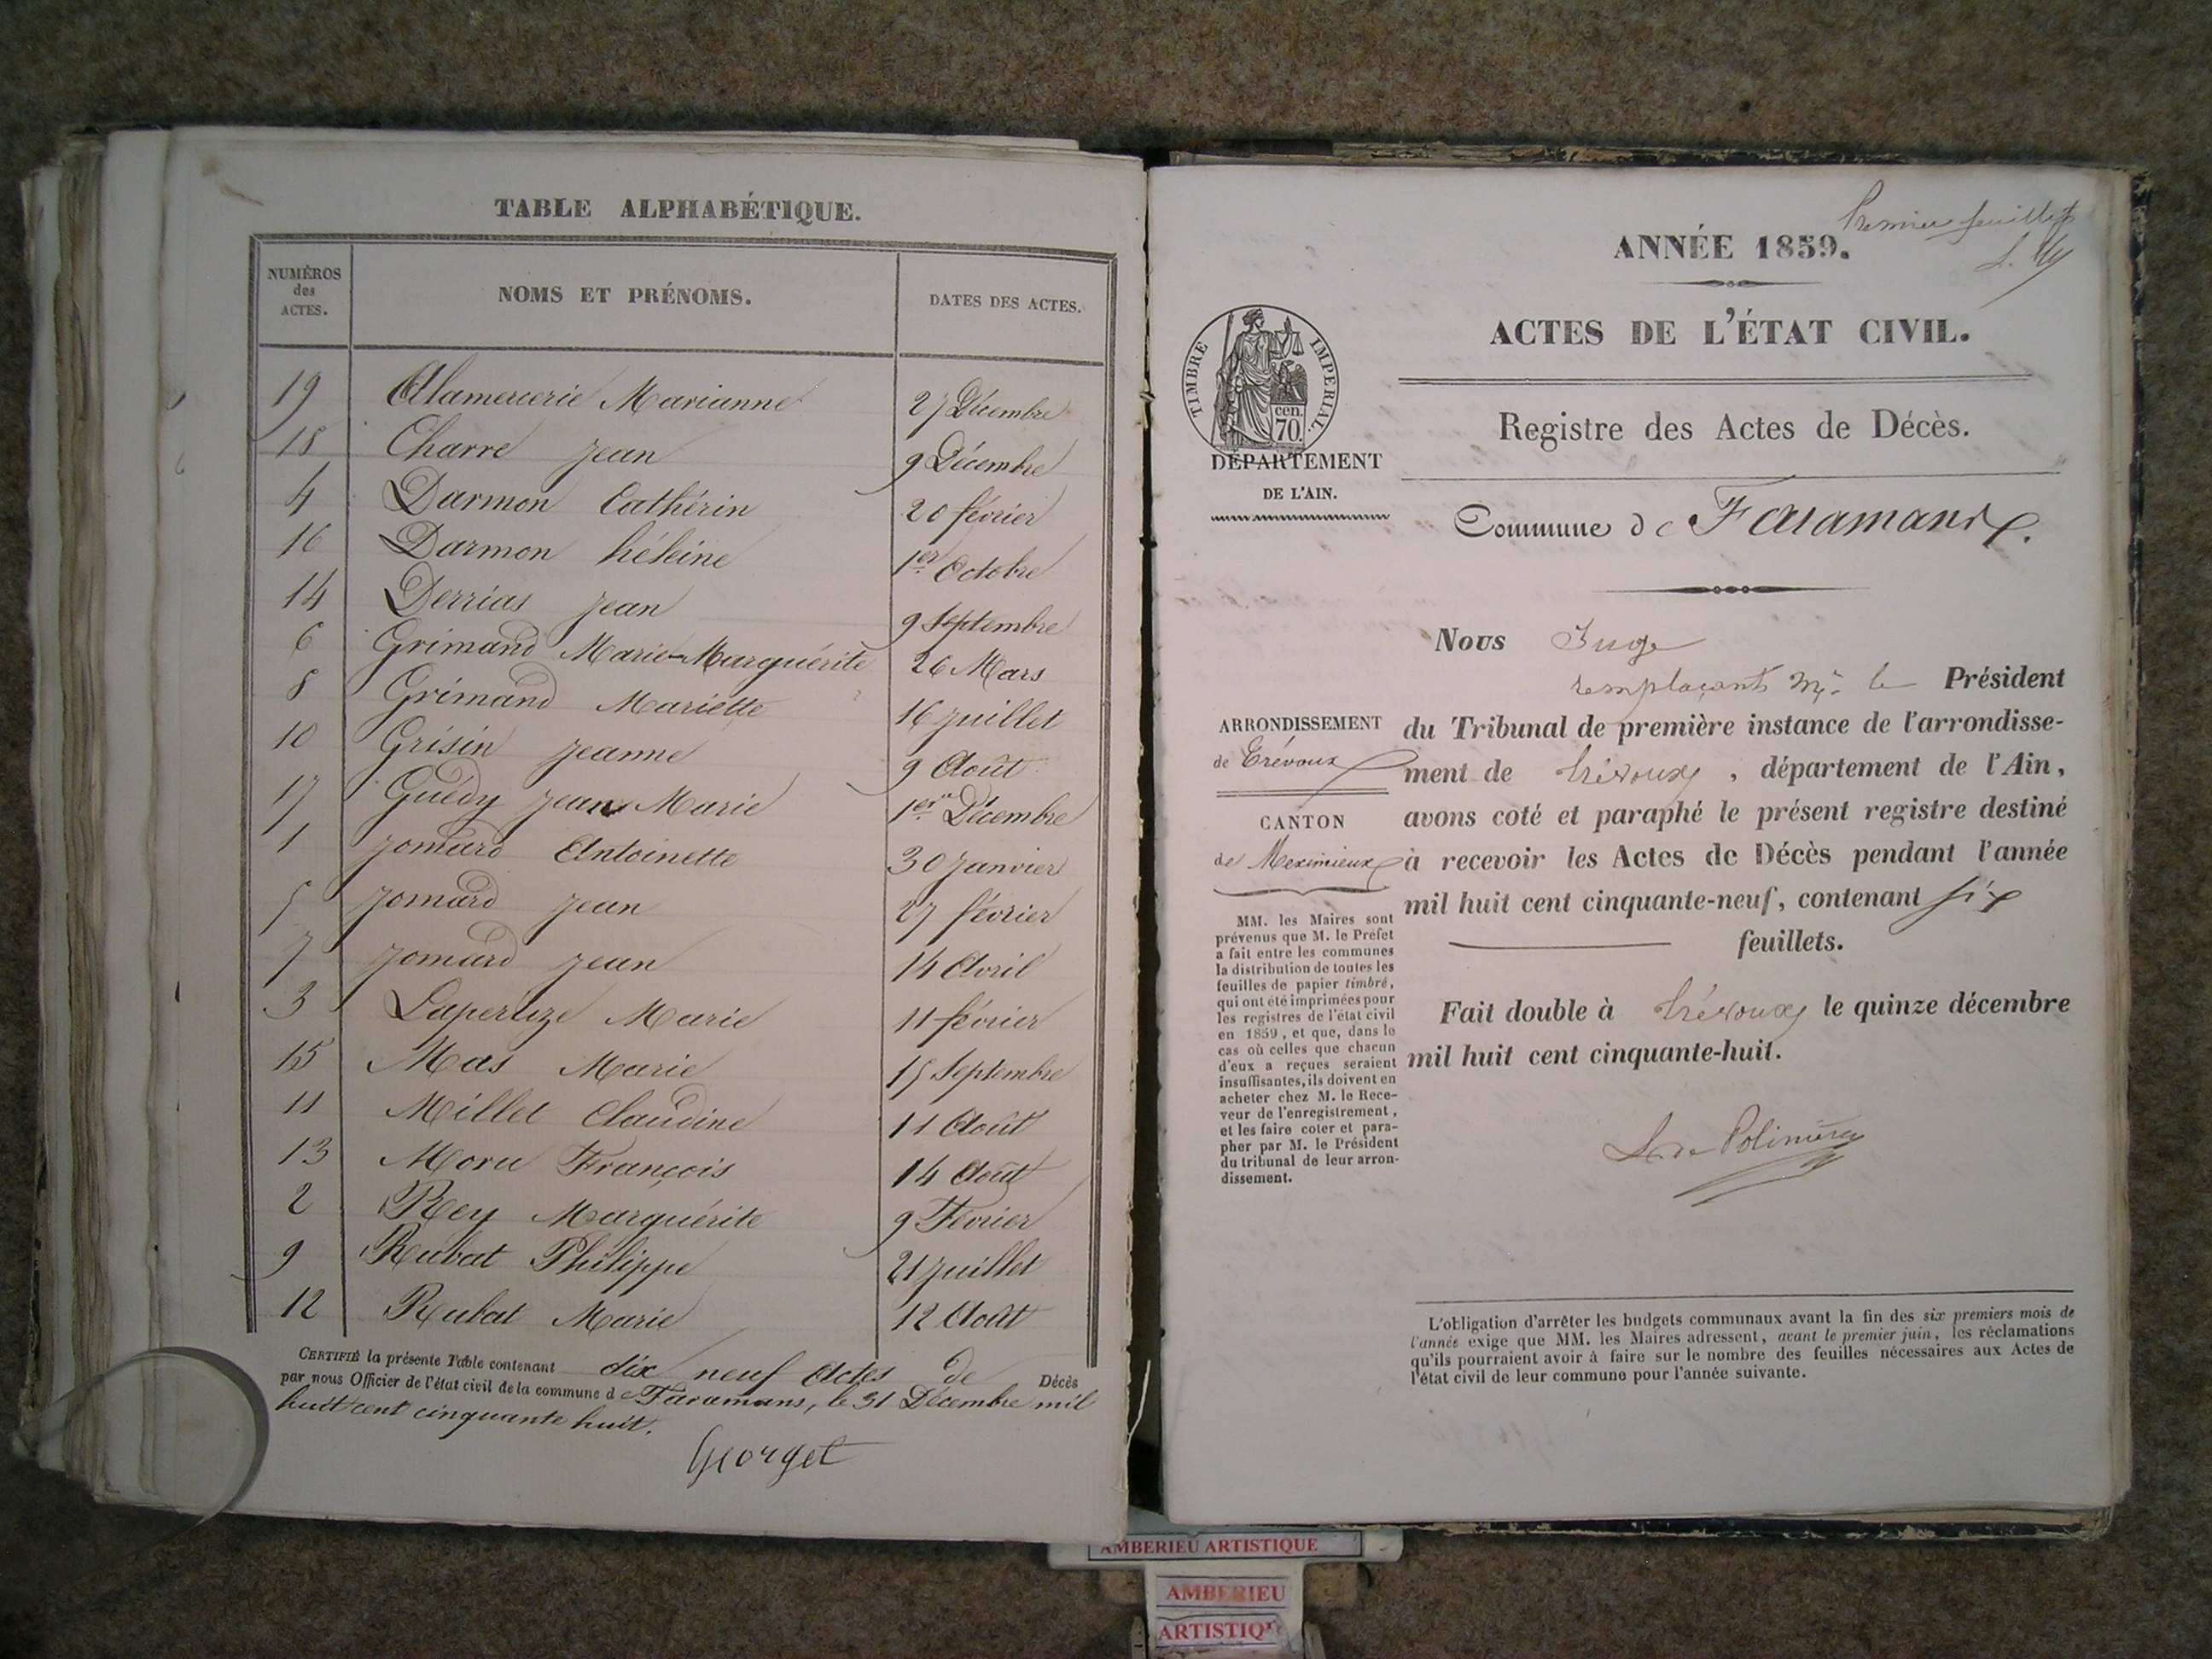 TABLE ALPHABÉTIQUE.
NUMÉROS des ACTES. NOMS ET PRÉNOMS. DATES DES ACTES.
19 Alamercerie Marianne 27 Décembre
18 Charre Jean 9 Décembre
4 Darmon Cathérin 20 février
16 Darmon héleine 1er Octobre
14 Derrias Jean 9 Septembre
6 Grimand Marie-Marguérite 26 Mars
8 Grimand Mariette 16 Juillet
10 Grisin Jeanne 9 Août
17 Guédy Jean Marie 1er Décembre
1 Jomard Antoinette 30 Janvier
5 Jomard Jean 27 février
7 Jomard Jean 14 Avril
3 Laperlize Marie 11 février
15 Mas Marie 15 Septembre
11 Millet Claudine 11 Août
13 Moru François 14 Août
2 Rey Marguérite 9 Février
9 Rubat Philippe 21 Juillet
12 Rubat Marie 12 Août
CERTIFIÉ la présente Table contenant dix neuf Actes de Décès
par nous Officier de l'état civil de la commune de Faramans, le 31 Décembre mil
huit cent cinquante huit.
Georget
Premier feuillet
ANNÉE 1859.
ACTES DE L'ÉTAT CIVIL.
TIMBRE IMPERIAL
70 cen.
Registre des Actes de Décès.
DÉPARTEMENT
DE L'AIN.
Commune de Faramans.
Nous Juge
remplaçant Mr. le Président
du Tribunal de première instance de l'arrondisse-
ment de Trévoux, département de l'Ain,
avons coté et paraphé le présent registre destiné
à recevoir les Actes de Décès pendant l'année
mil huit cent cinquante-neuf, contenant six
feuillets.
Fait double à Trévoux le quinze décembre
mil huit cent cinquante-huit.
ARRONDISSEMENT
de Trévoux
CANTON
de Meximieux
MM. les Maires sont
prévenus que M. le Préfet
a fait entre les communes
la distribution de toutes les
feuilles de papier timbré,
qui ont été imprimées pour
les registres de l'état civil
en 1859, et que, dans le
cas où celles que chacun
d'eux a reçues seraient
insuffisantes, ils doivent en
acheter chez M. le Rece-
veur de l'enregistrement,
et les faire coter et para-
pher par M. le Président
du tribunal de leur arron-
dissement.
L'obligation d'arrêter les budgets communaux avant la fin des six premiers mois de
l'année exige que MM. les Maires adressent, avant le premier juin, les réclamations
qu'ils pourraient avoir à faire sur le nombre des feuilles nécessaires aux Actes de
l'état civil de leur commune pour l'année suivante.
AMBERIEU ARTISTIQUE
AMBERIEU
ARTISTIQ